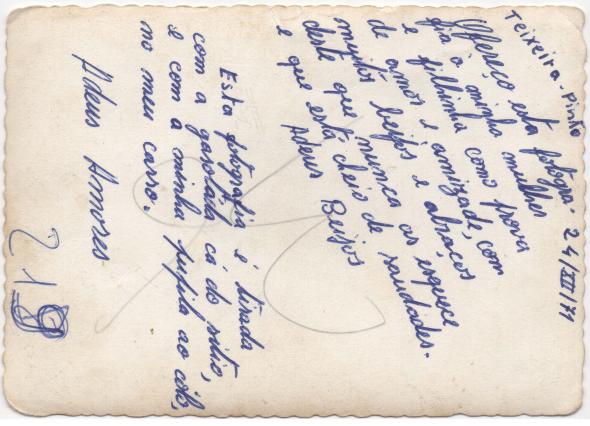 Teixeira-Pinto 24/XII/71
Ofereço esta fotogra-
fia à minha mulher
e filhinha como prova
de amor e amizade, com
muitos beijos e abraços
deste que nunca as esquece
e que está cheio de saudades.
Adeus Beijos
Esta fotografia é tirada
com a garotada cá do sítio,
e com a minha ao colo,
no meu carro.
Adeus Amores
219